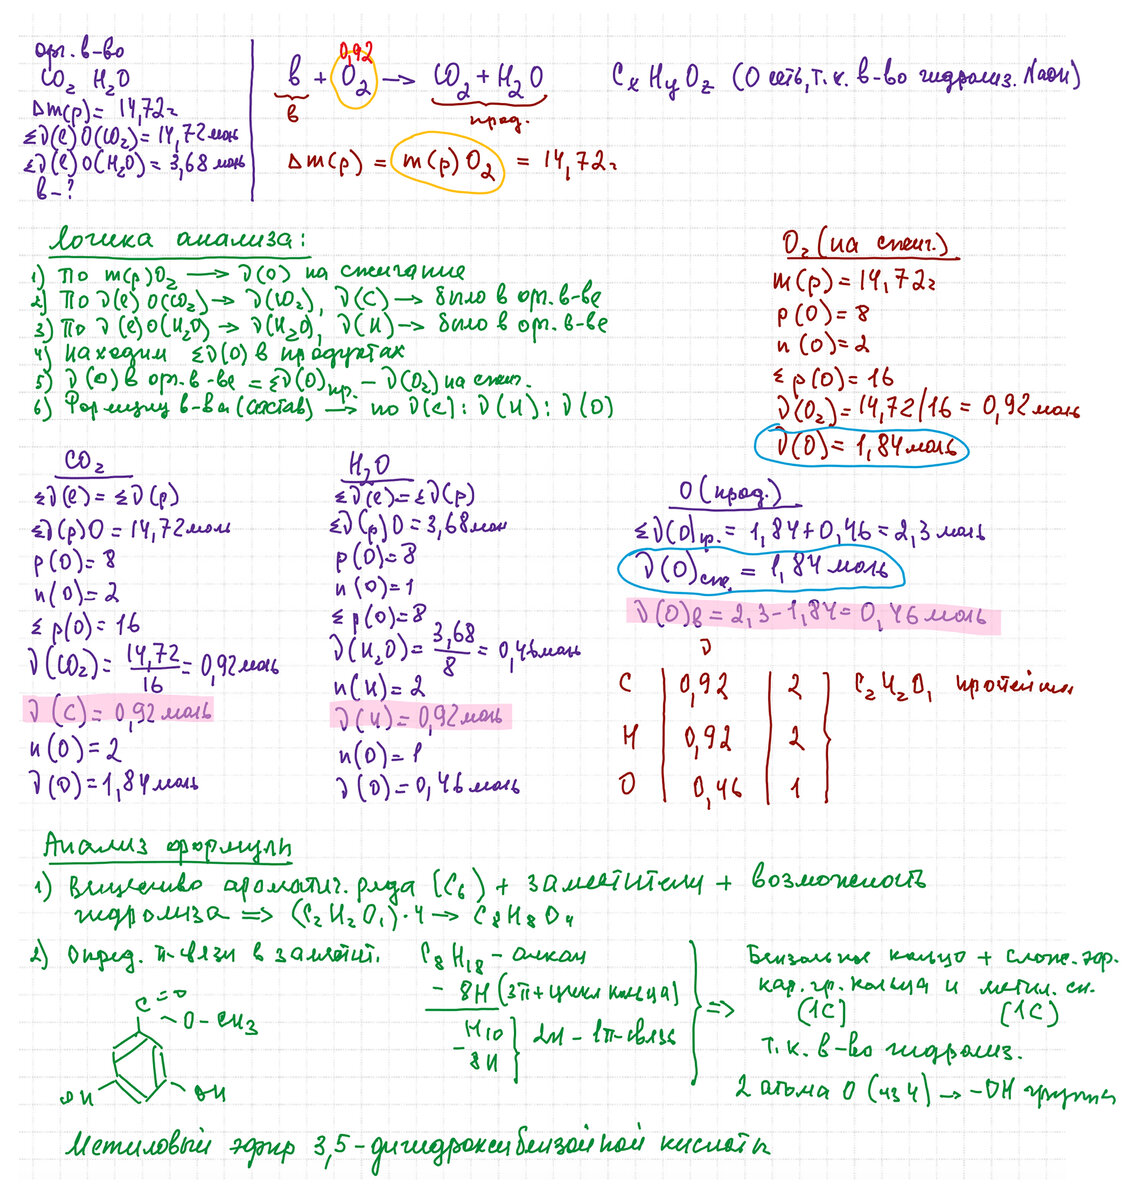 орг. в-во
CO₂ H₂O
Δm(p) = 14,72г
Σν(e⁻) O(CO₂) = 14,72 моль
Σν(e⁻) O(H₂O) = 3,68 моль
в - ?
0,92
в + O₂ → CO₂ + H₂O
в
прод.
CxHyOz (O есть, т.к. в-во гидролиз. NaOH)
Δm(p) = m(p) O₂ = 14,72г
Логика анализа:
1) По m(p)O₂ → ν(O) на сжигание
2) По ν(e) O(CO₂) → ν(CO₂), ν(C) → было в орг. в-ве
3) По ν(e) O(H₂O) → ν(H₂O), ν(H) → было в орг. в-ве
4) Находим Σν(O) в продуктах
5) ν(O) в орг. в-ве = Σν(O)пр. - ν(O₂) на сжиг.
6) Формулу в-ва (состав) → по ν(C) : ν(H) : ν(O)
O₂ (на сжиг.)
m(p) = 14,72г
p(O) = 8
n(O) = 2
Σp(O) = 16
ν(O₂) = 14,72/16 = 0,92 моль
ν(O) = 1,84 моль
CO₂
Σν(e) = Σν(p)
Σν(p) O = 14,72 моль
p(O) = 8
n(O) = 2
Σp(O) = 16
ν(CO₂) = 14,72/16 = 0,92 моль
ν(C) = 0,92 моль
n(O) = 2
ν(O) = 1,84 моль
H₂O
Σν(e) = Σν(p)
Σν(p) O = 3,68 моль
p(O) = 8
n(O) = 1
Σp(O) = 8
ν(H₂O) = 3,68/8 = 0,46 моль
n(H) = 2
ν(H) = 0,92 моль
n(O) = 1
ν(O) = 0,46 моль
O (прод.)
Σν(O)пр. = 1,84 + 0,46 = 2,3 моль
ν(O)сж. = 1,84 моль
ν(O)в = 2,3 - 1,84 = 0,46 моль
ν
C | 0,92 | 2 } C₂H₂O₁ простейшая
H | 0,92 | 2
O | 0,46 | 1
Анализ формулы
1) Вещество ароматич. ряда (C₆) + заместители + возможность
гидролиза => (C₂H₂O₁)·4 → C₈H₈O₄
2) Опред. π-связи в заместит.
C₈H₁₈ - алкан
- 8H (3π + цикл кольца)
H₁₀
- 8H
2H - 1π-связь
=>
Бензольное кольцо + слож. эфр.
кар. гр. кольца и метил. сп.
(1C) (1C)
т.к. в-во гидролиз.
2 атома O (из 4) → -OH группы
C =O
O - CH₃
OH
OH
Метиловый эфир 3,5-дигидроксибензойной кислоты